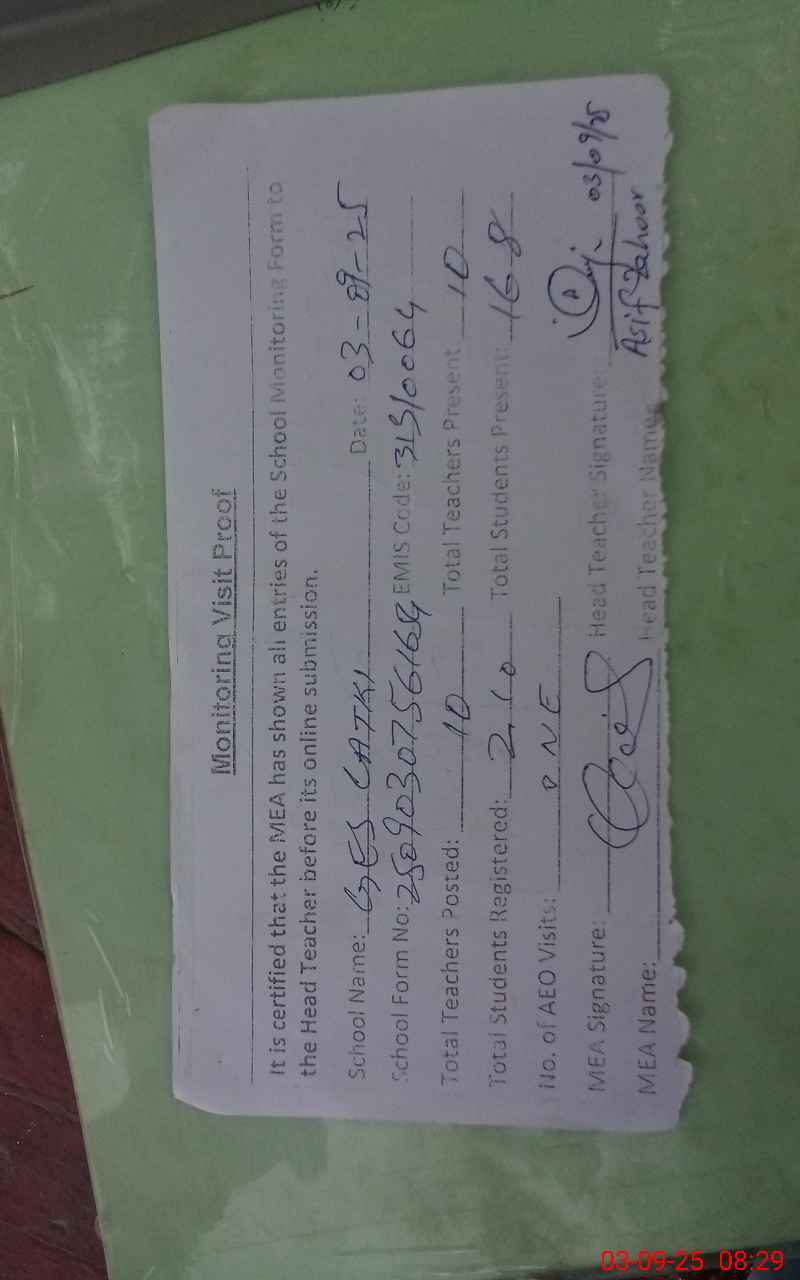 Monitoring Visit Proof
It is certified that the MEA has shown all entries of the School Monitoring Form to
the Head Teacher before its online submission.
School Name: GES CATKI Date: 03-09-25
School Form No: EMIS Code: 31310064
Total Teachers Posted: 10 Total Teachers Present 10
Total Students Registered: 210 Total Students Present: 168
No. of AEO Visits: ONE
MEA Signature: Head Teacher Signature: 03/09/25
MEA Name: Head Teacher Name Asif Zahoor
03-09-25 08:29